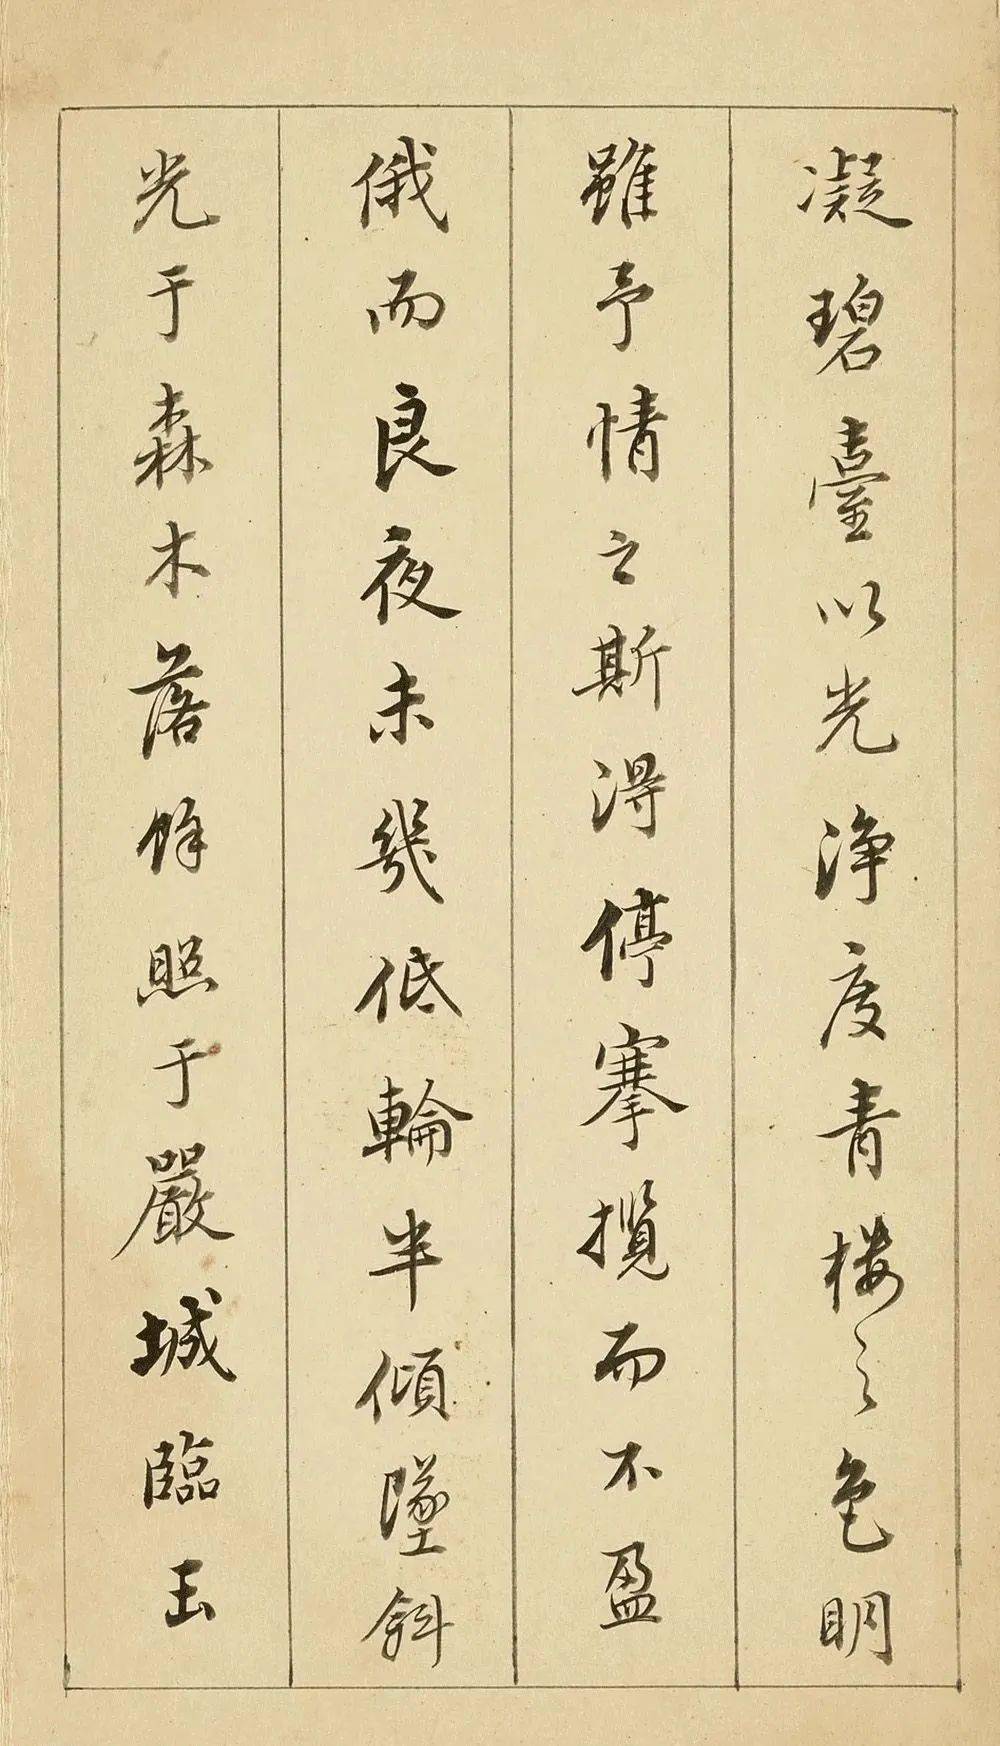 凝碧臺以光淨度青樓之色明
雖予情之斯得停搴攬而不盈
俄而良夜未幾低輪半傾墜斜
光于森木落餘照于嚴城臨玉